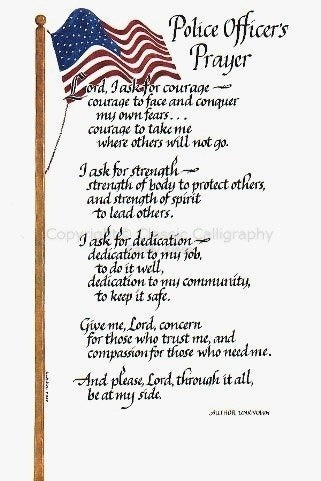 Police Officer's
Prayer
Lord, I ask for courage —
courage to face and conquer
my own fears...
courage to take me
where others will not go.
I ask for strength —
strength of body to protect others,
and strength of spirit
to lead others.
Copyright © Classic Calligraphy
I ask for dedication —
dedication to my job,
to do it well,
dedication to my community,
to keep it safe.
Give me, Lord, concern
for those who trust me, and
compassion for those who need me.
And please, Lord, through it all,
be at my side.
AUTHOR UNKNOWN